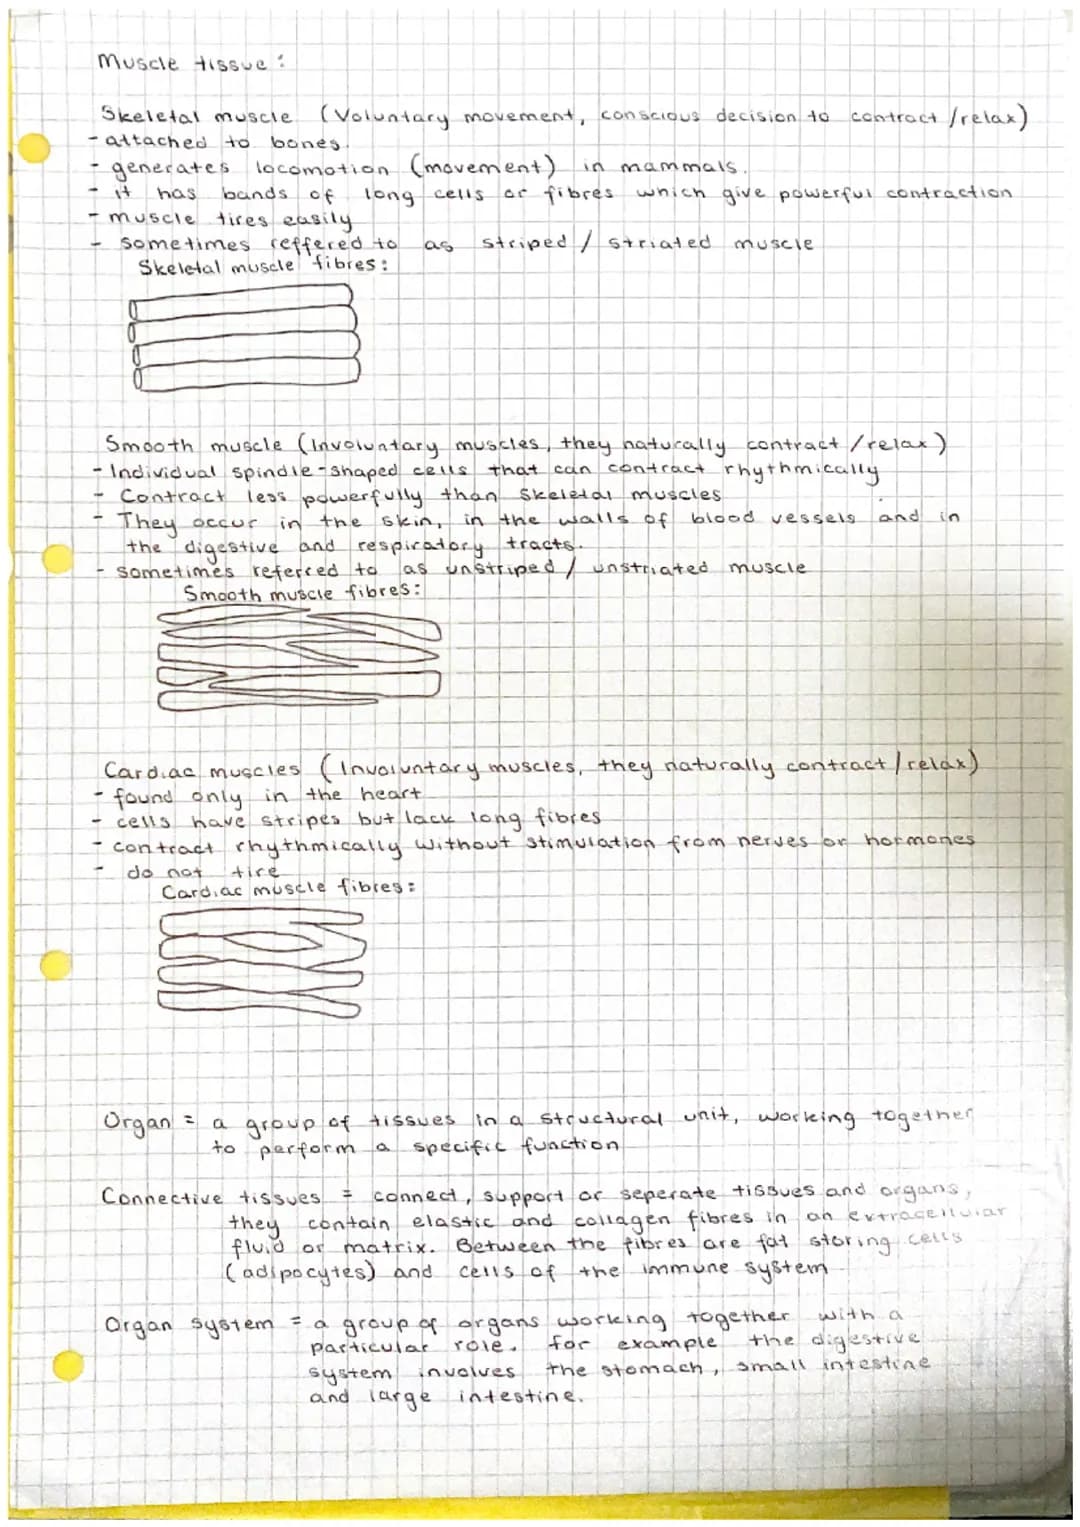 Muscle tissue :
Skeletal muscle (Voluntary movement, conscious decision to contract /relax)
- attached to bones.
- generates locomotion (movement) in mammals.
- it has bands of long cells or fibres which give powerful contraction
- muscle tires easily
- sometimes reffered to as striped / striated muscle
Skeletal muscle fibres:
Smooth muscle (Involuntary muscles, they naturally contract /relax)
- Individual spindle-shaped cells that can contract rhythmically
- Contract less powerfully than skeletal muscles
- They occur in the skin, in the walls of blood vessels and in
the digestive and respiratory tracts.
- sometimes referred to as unstriped / unstriated muscle
Smooth muscle fibres:
Cardiac muscles (Involuntary muscles, they naturally contract/relax)
- found only in the heart
- cells have stripes but lack long fibres
- contract rhythmically without stimulation from nerves or hormones
- do not tire
Cardiac muscle fibres:
Organ = a group of tissues in a structural unit, working together
to perform a specific function
Connective tissues = connect, support or seperate tissues and organs,
they contain elastic and collagen fibres in an extracellular
fluid or matrix. Between the fibres are fat storing cells
(adipocytes) and cells of the immune system
Organ system = a group of organs working together with a
particular role. for example the digestive
system involves the stomach, small intestine
and large intestine.